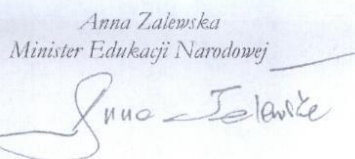 Anna Zalewska
Minister Edukacji Narodowej
Anna Zalewska